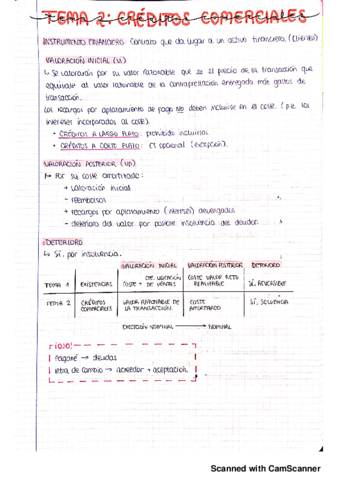 TEMA 2: CRÉDITOS COMERCIALES
INSTRUMENTO FINANCIERO: Contrato que da lugar a un activo financiero. (clientes)
VALORACIÓN INICIAL (VI)
↳ Se valorarán por su valor razonable que es el precio de la transacción que
equivale al valor razonable de la contraprestación entregada más gastos de
transacción.
Los recargos por aplazamiento de pago NO deben incluirse en el coste. (p.e. los
intereses incorporados al coste).
• CRÉDITOS A LARGO PLAZO: prohibido incluirlos.
• CRÉDITOS A CORTO PLAZO: El opcional (excepción).
VALORACIÓN POSTERIOR (VP)
↳ Por su coste amortizado:
+ valoración inicial
- reembolsos
+ recargos por aplazamiento (intereses) devengados
- deterioro del valor por posible insolvencia del deudor.
DETERIORO
↳ Sí, por insolvencia.
VALORACIÓN INICIAL VALORACIÓN POSTERIOR DETERIORO
TEMA 1 EXISTENCIAS COSTE + DE VENTAS COSTE VALOR NETO REALIZABLE SÍ, REVERSIBLE
TEMA 2 CRÉDITOS COMERCIALES VALOR RAZONABLE DE LA TRANSACCIÓN COSTE AMORTIZADO SÍ, SOLVENCIA
EXCEPCIÓN NOMINAL → NOMINAL
¡OJO!
pagaré → deudas
letra de cambio → acreedor + aceptación
Scanned with CamScanner